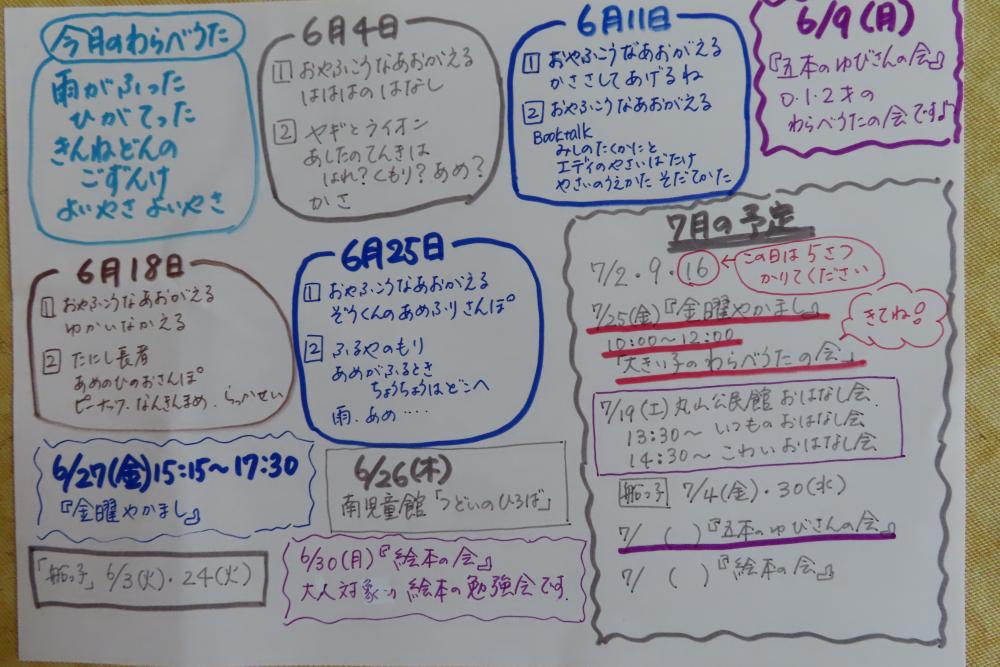 今月のわらべうた
雨がふった
ひがてった
きんねどんの
ごずんけ
よいやさ よいやさ
6月4日
1 おやふこうなあおがえる
はははの はなし
2 ヤギとライオン
あしたのてんきは
はれ?くもり?あめ?
かさ
6月11日
1 おやふこうなあおがえる
かささしてあげるね
2 おやふこうなあおがえる
Booktalk
みしのたくかにと
エディのやさいばたけ
やさいのうえかた そだてかた
6/9(月)
『五本のゆびさんの会』
0・1・2才の
わらべうたの会です♪
6月18日
1 おやふこうなあおがえる
ゆかいなかえる
2 たにし長者
あめのひのおさんぽ
ピーナッツ・なんきんまめ・らっかせい
6月25日
1 おやふこうなあおがえる
ぞうくんのあめふりさんぽ
2 ふるやのもり
あめがふるとき
ちょうちょうはどこへ
雨、あめ‥‥
7月の予定
7/2・9・16 ← この日は5さつ
かりてください
7/25(金)『金曜やかまし』
10:00〜12:00
きてね!
「大きい子のわらべうたの会」
7/19(土)丸山公民館 おはなし会
13:30〜 いつものおはなし会
14:30〜 こわいおはなし会
船っ子 7/4(金)・30(水)
7/ ( )『五本のゆびさんの会』
7/ ( )『絵本の会』
6/27(金)15:15〜17:30
『金曜やかまし』
6/26(木)
南児童館「つどいのひろば」
「船っ子」6/3(火)・24(火)
6/30(月)『絵本の会』
大人対象の 絵本の勉強会です.